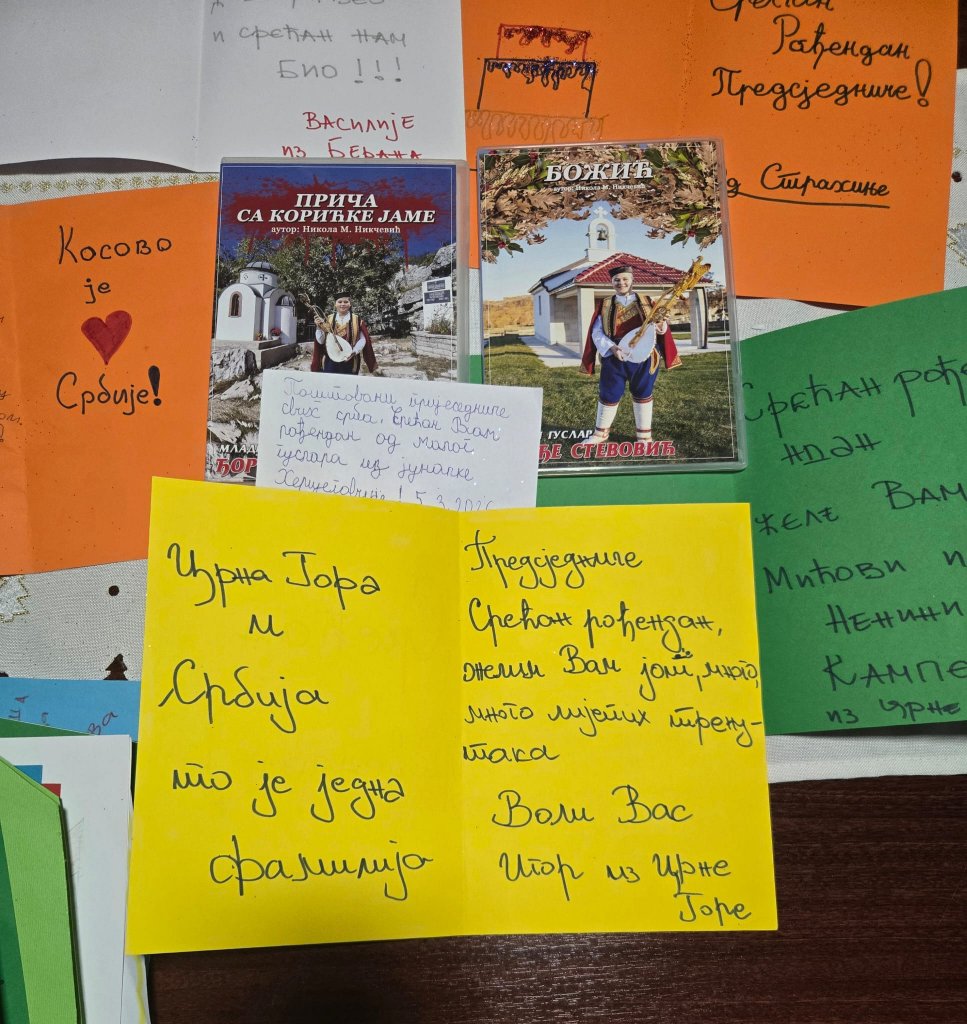 и срећан нам
био!!!
Василије
из Берана
Рођендан
Предсједниче!
Страхиње
Косово
је
Србије!
ПРИЧА
СА КОРИЋКЕ ЈАМЕ
аутор: Никола М. Никчевић
БОЖИЋ
аутор: Никола М. Никчевић
ГУСЛАР
СТЕВОВИЋ
Поштовани
свих срба, срећан Вам
рођендан од малог
гуслара из јуначке
Херцеговине!
Срећан рође
ндан
желе Вам
Мићови и
Ненини
Кампе
из црне
Црна Гора
и
Србија
то је једна
фамилија
Предсједниче
Срећан рођендан,
желим Вам још, много,
много лијепих трену-
така
Воли Вас
Игор из Црне
Горе